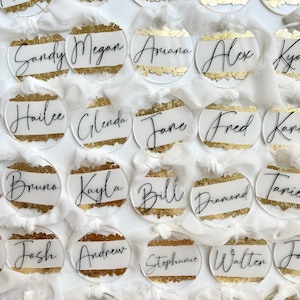 Sandy Megan Ariana Alex
Hailee Glenda Jane Fred
Bruno Kayla Bill Diamond
Josh Andrew Stephanie Walter